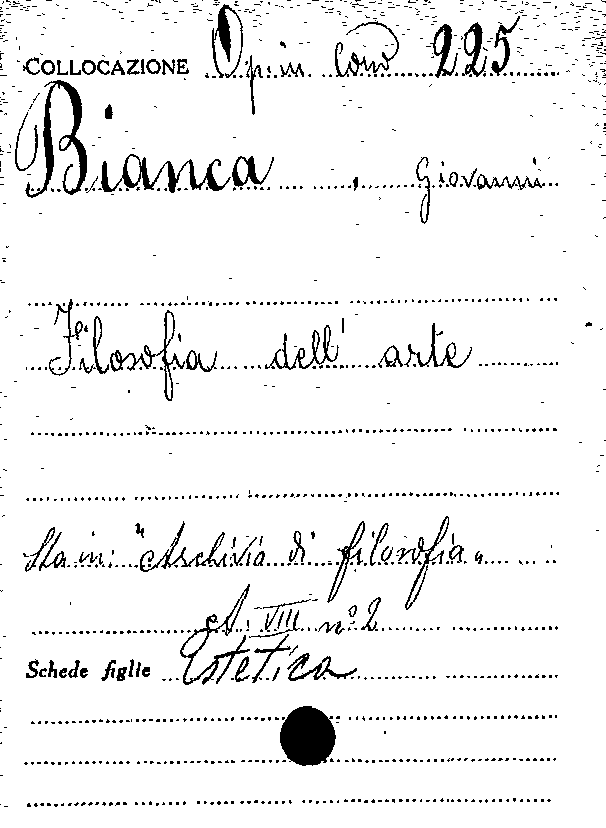 COLLOCAZIONE Op. in cons 225
Bianca, Giovanni
Filosofia dell' arte
Sta in: "Archivio di filosofia„
A. VIII n.º 2
Schede figlie Estetica